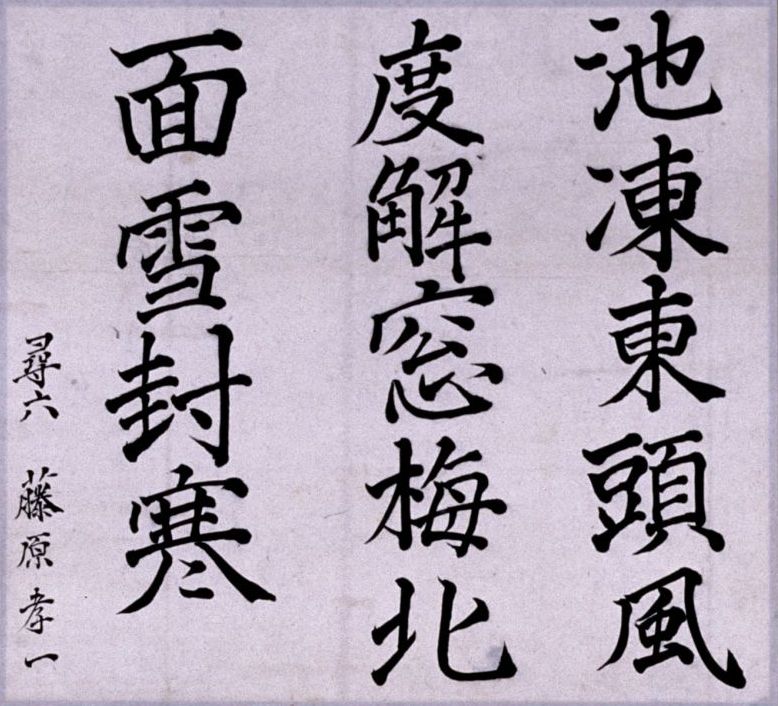 池凍東頭風
度解窓梅北
面雪封寒
尋六 藤原孝一